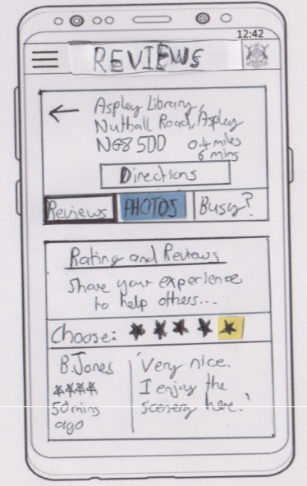 12:42
REVIEWS
← Aspley Library,
Nuthall Road, Aspley
NG8 5DD 0.4 miles
6 mins
Directions
Reviews PHOTOS Busy?
Rating and Reviews
Share your experience
to help others...
Choose: ★ ★ ★ ★ ★
B.Jones
★★★★
50 mins
ago
'Very nice.
I enjoy the
scenery here.'